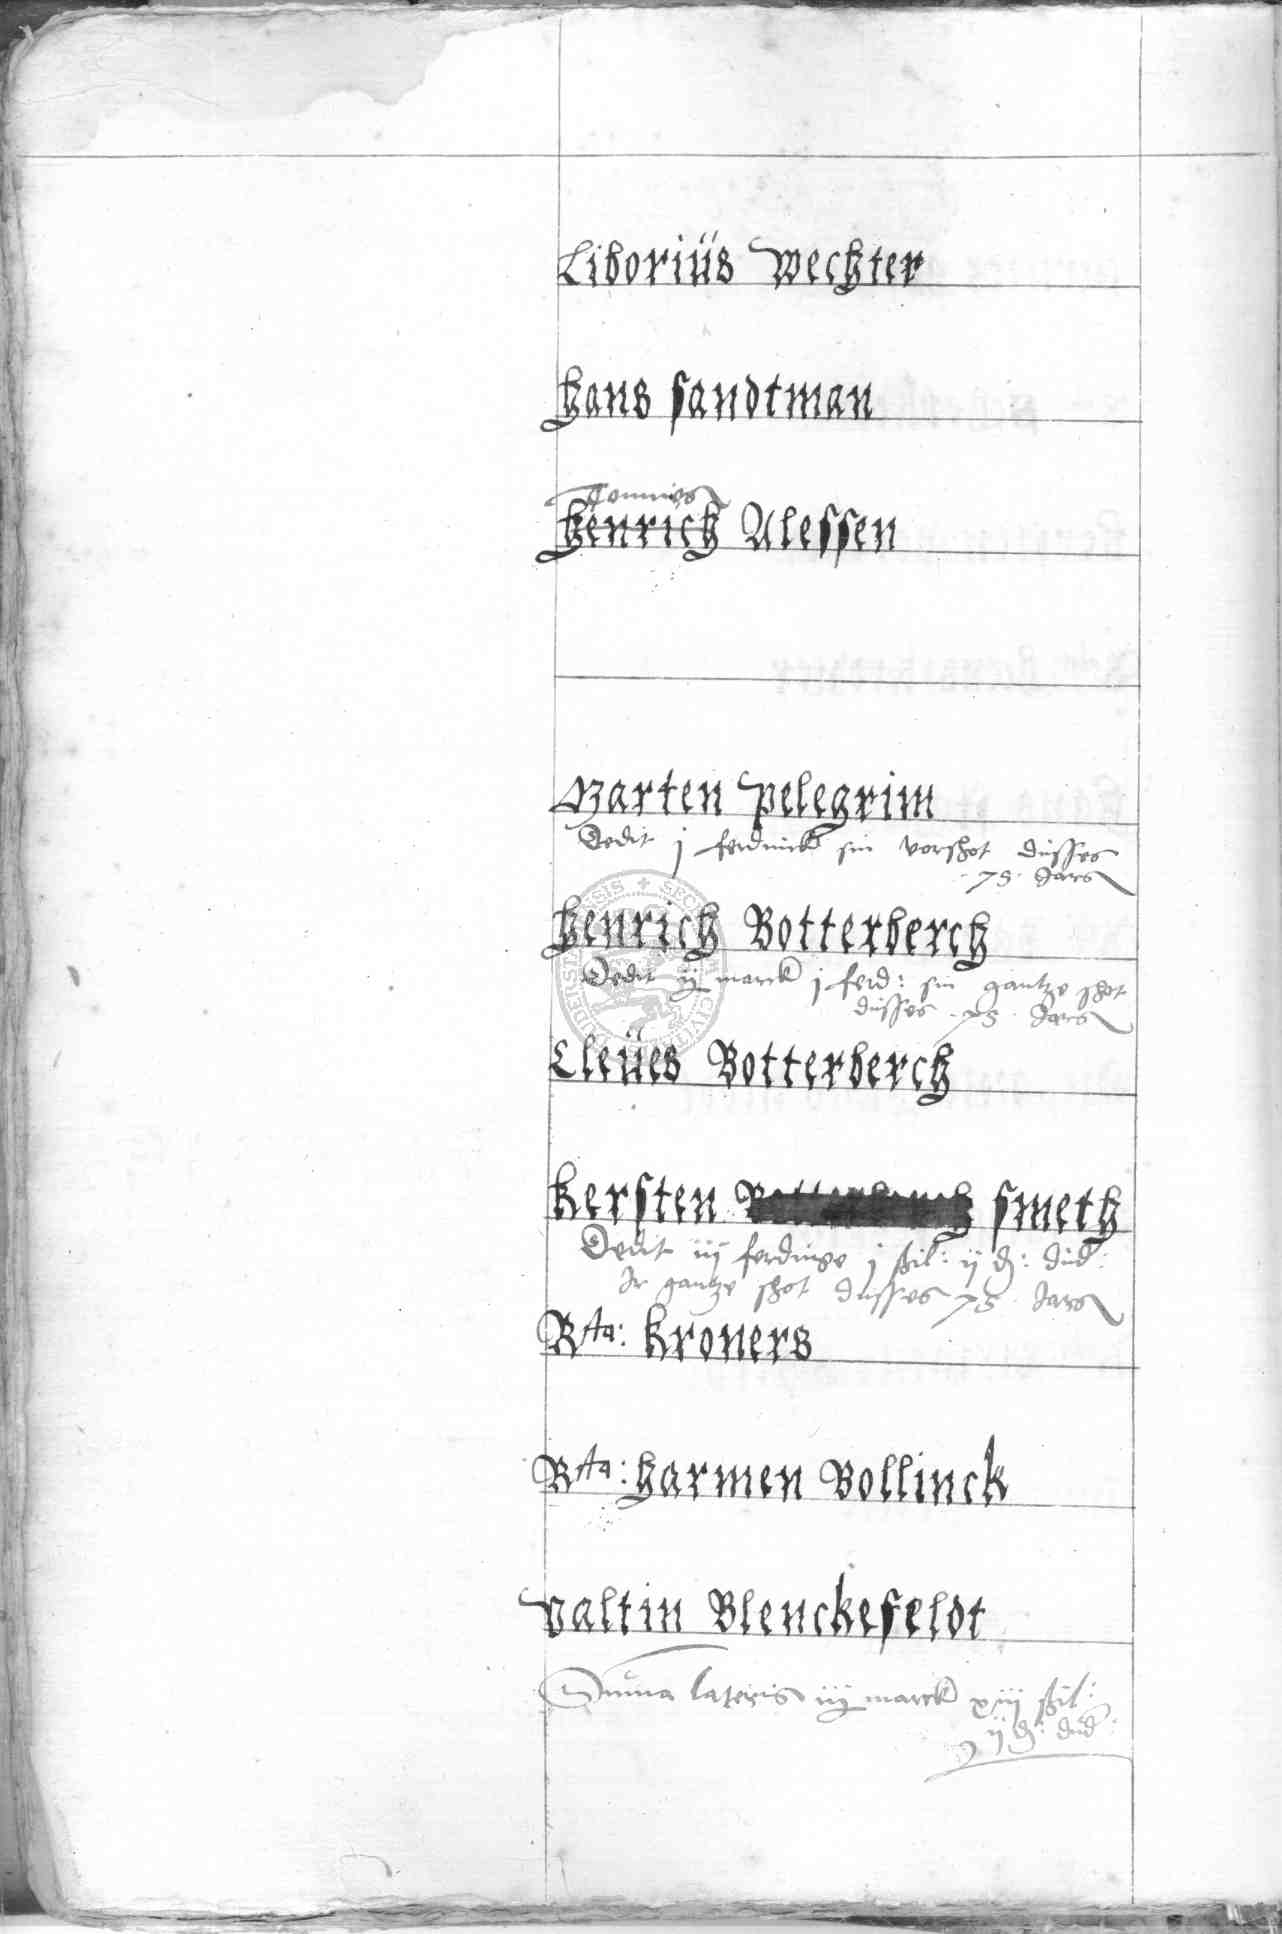 Liboriüs Wechter
Hans Sandtman
Tonnies
Henrich Alessen
Marten Pelegrim
Dedit j ferdinck sin vorshot düsses
75 Jars
Henrich Botterberch
Dedit ij marck j ferd: sin gantze shot
düsses 75 Jars
Cleües Botterberch
Kersten Botterberch Smeth
Dedit iij ferdinge j ßil: ij d: düd:
Ir gantze shot düsses 75 Jars
Rta: Kroners
Rta: Harmen Bollinck
Valtin Blenckefeldt
Suma lateris iij marck xiij ßil:
ij d: düd: